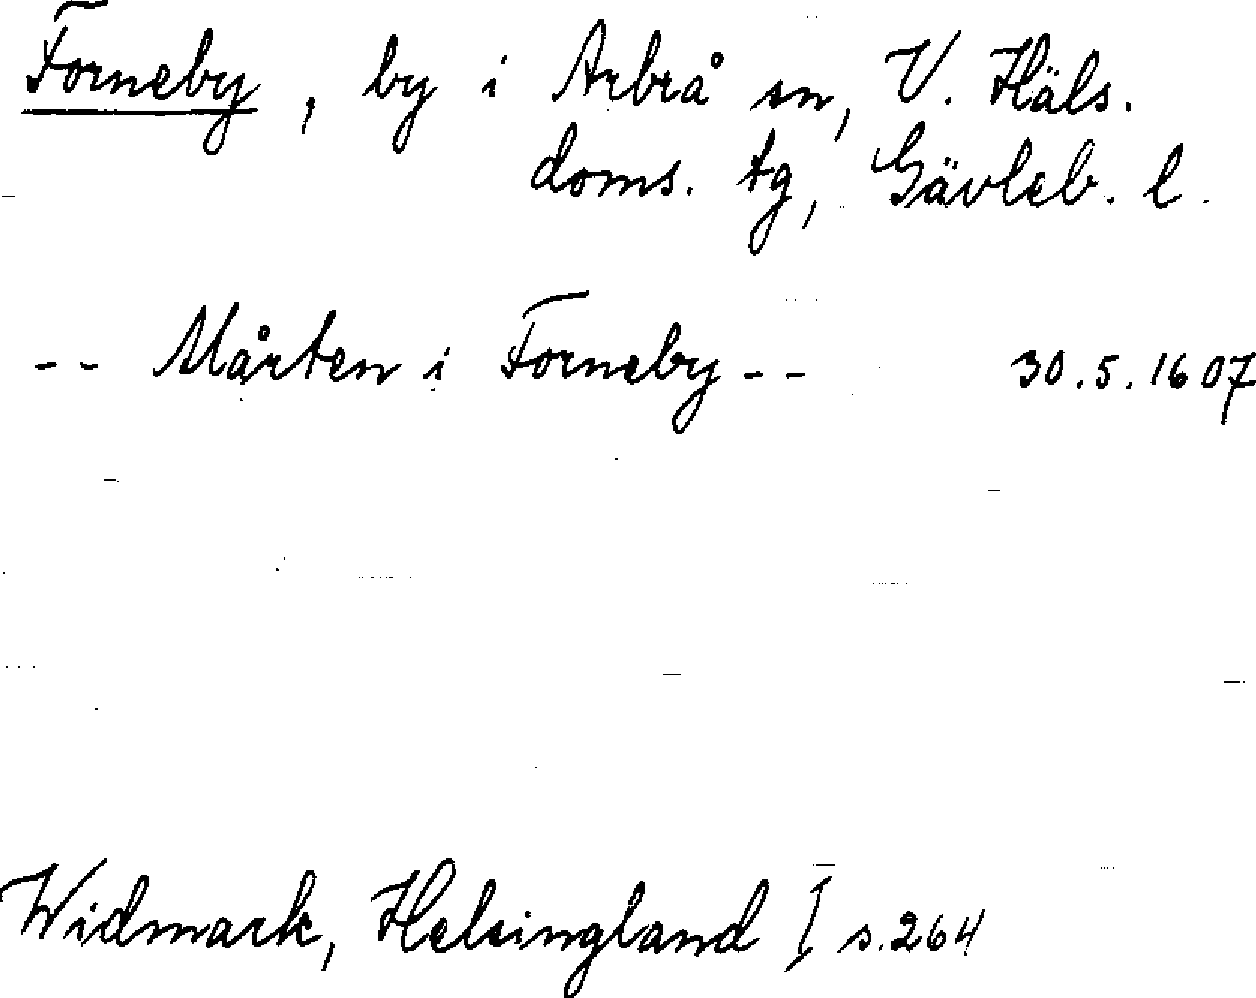 Forneby, by i Arbrå sn, V. Häls.
doms. tg, Gävleb. l.
-- Mårten i Forneby -- 30.5.1607
Widmark, Helsingland I s.264